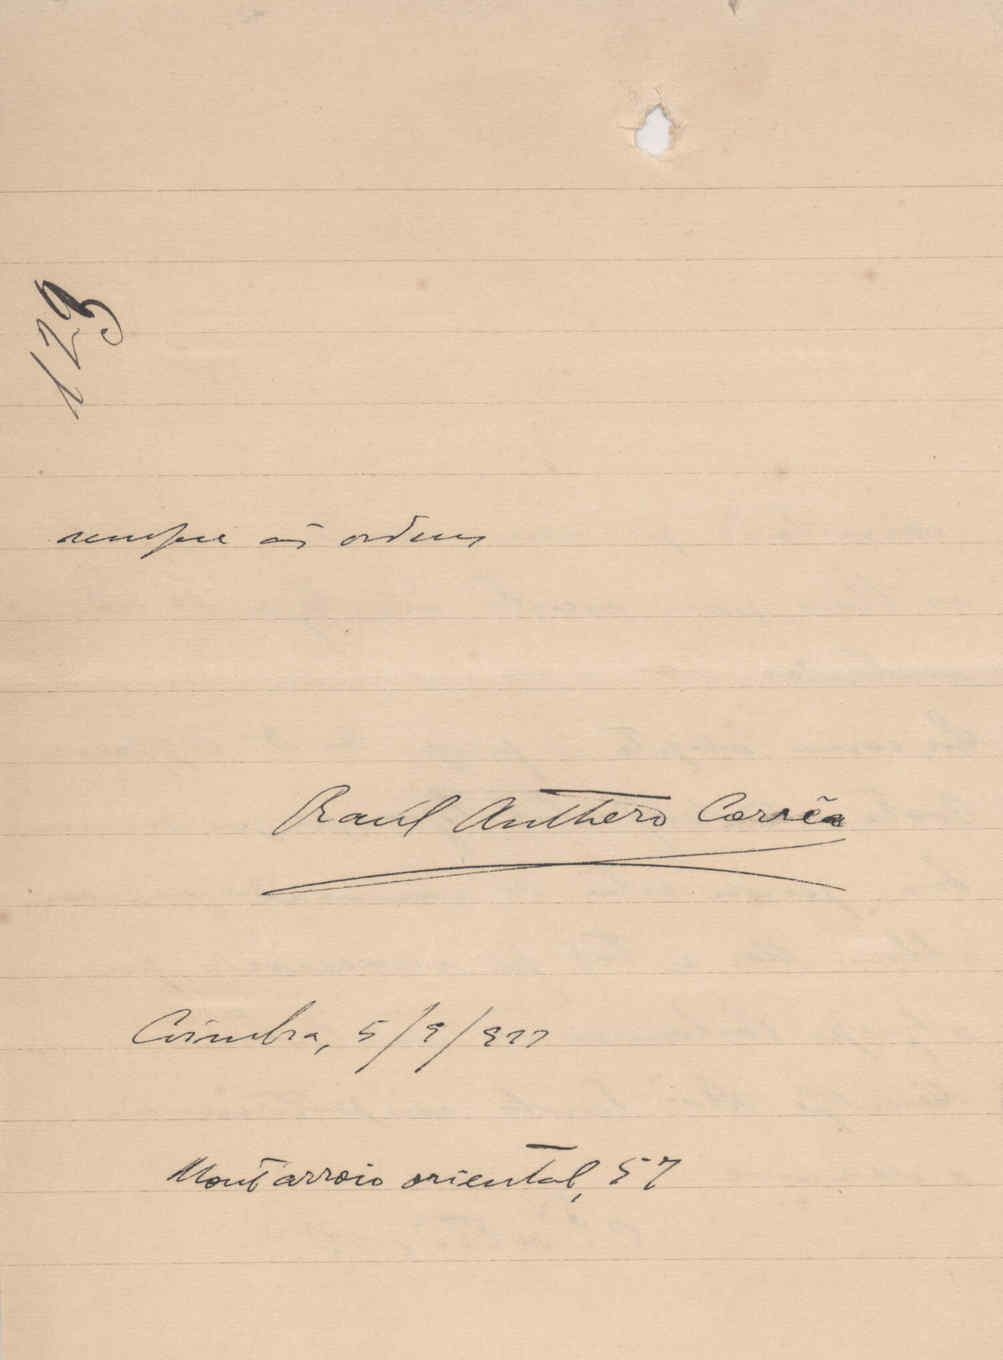 129
sempre ás ordens
Raúl Anthero Corrêa
Coimbra, 5/9/922
Montarroio oriental, 57